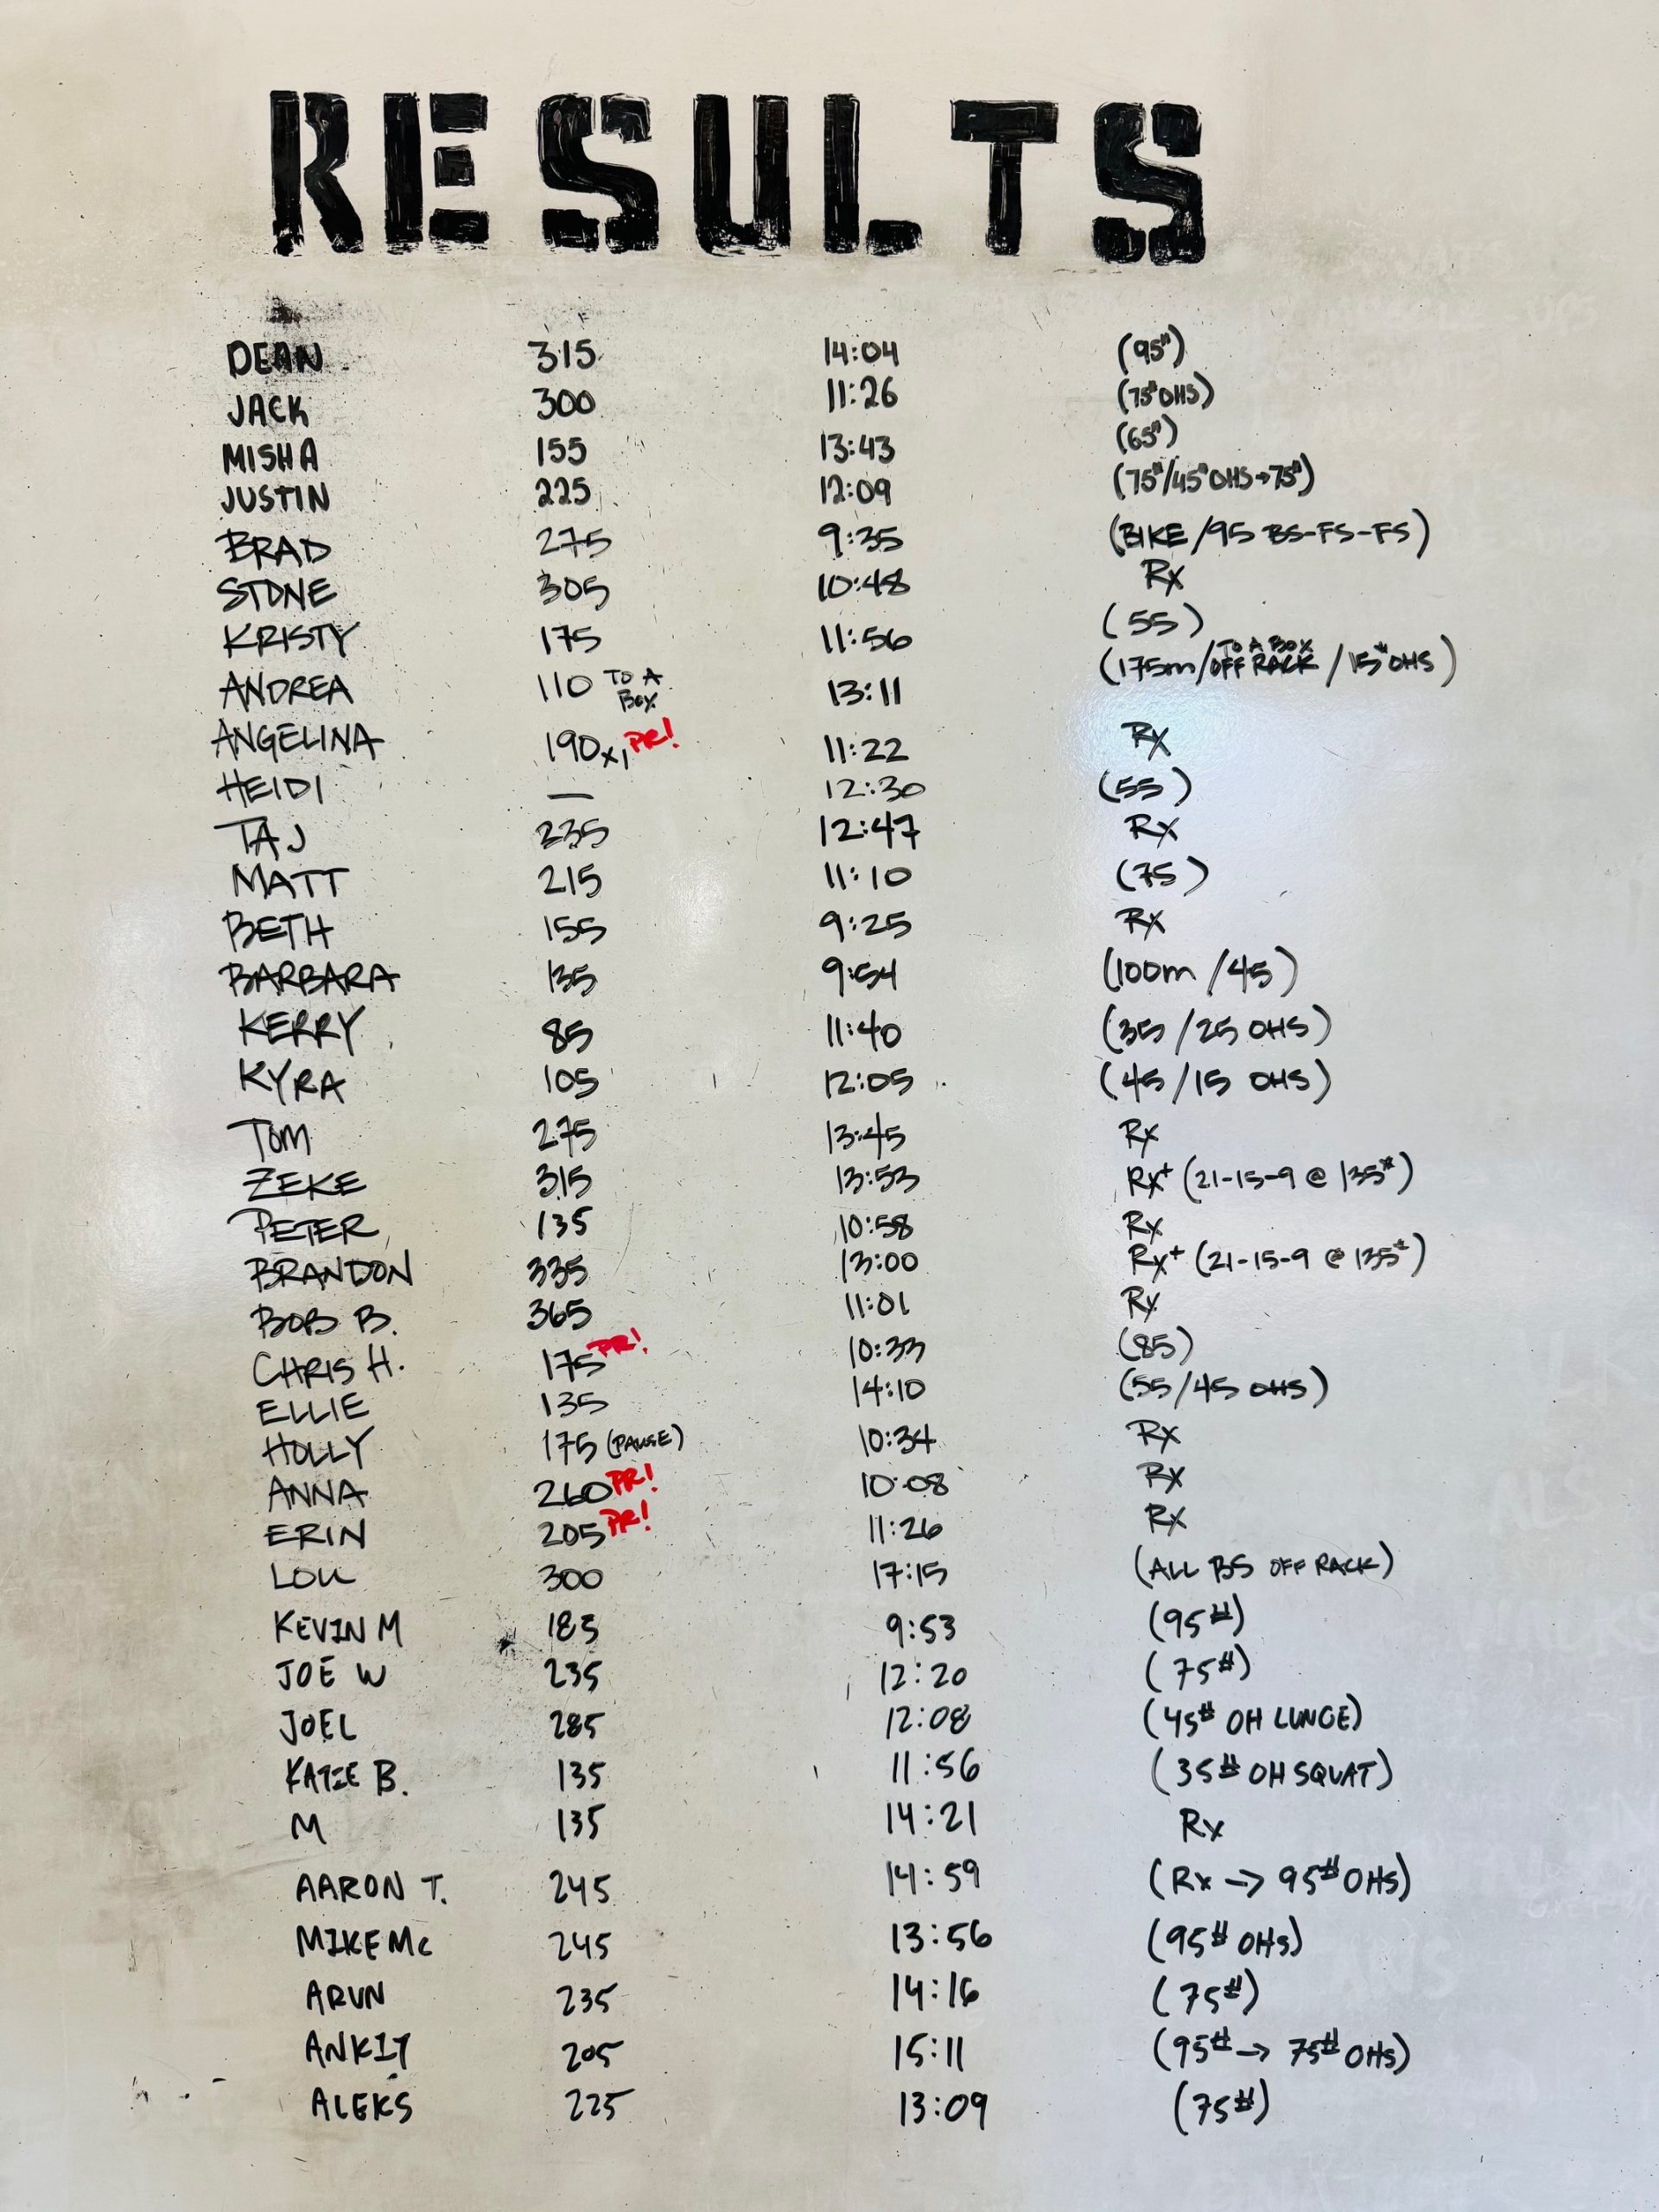 RESULTS
DEAN 315 14:04 (95#)
JACK 300 11:26 (75# OHS)
MISHA 155 13:43 (65#)
JUSTIN 225 12:09 (75#/45# OHS→75#)
BRAD 275 9:35 (BIKE/95 BS-FS-FS)
STONE 305 10:48 Rx
KRISTY 175 11:56 (55)
ANDREA 110 TO A BOX 13:11 (175m/OFF RACK TO A BOX/15# OHS)
ANGELINA 190x1 PR! 11:22 Rx
HEIDI — 12:30 (55)
TAJ 235 12:47 Rx
MATT 215 11:10 (75)
BETH 155 9:25 Rx
BARBARA 135 9:54 (100m/45)
KERRY 85 11:40 (35/25 OHS)
KYRA 105 12:05 (45/15 OHS)
TOM 275 13:45 Rx
ZEKE 315 13:53 Rx+ (21-15-9 @ 135#)
PETER 135 10:58 Rx
BRANDON 335 13:00 Rx+ (21-15-9 @ 135#)
BOB B. 365 11:01 Rx
CHRIS H. 175 PR! 10:33 (85)
ELLIE 135 14:10 (55/45 OHS)
HOLLY 175 (PAUSE) 10:34 Rx
ANNA 260 PR! 10:08 Rx
ERIN 205 PR! 11:26 Rx
LOU 300 17:15 (ALL BS OFF RACK)
KEVIN M 185 9:53 (95#)
JOE W 235 12:20 (75#)
JOEL 285 12:08 (45# OH LUNGE)
KATIE B. 135 11:56 (35# OH SQUAT)
M 135 14:21 Rx
AARON T. 245 14:59 (Rx → 95# OHS)
MIKE Mc 245 13:56 (95# OHS)
ARUN 235 14:16 (75#)
ANKIT 205 15:11 (95# → 75# OHS)
ALEKS 225 13:09 (75#)